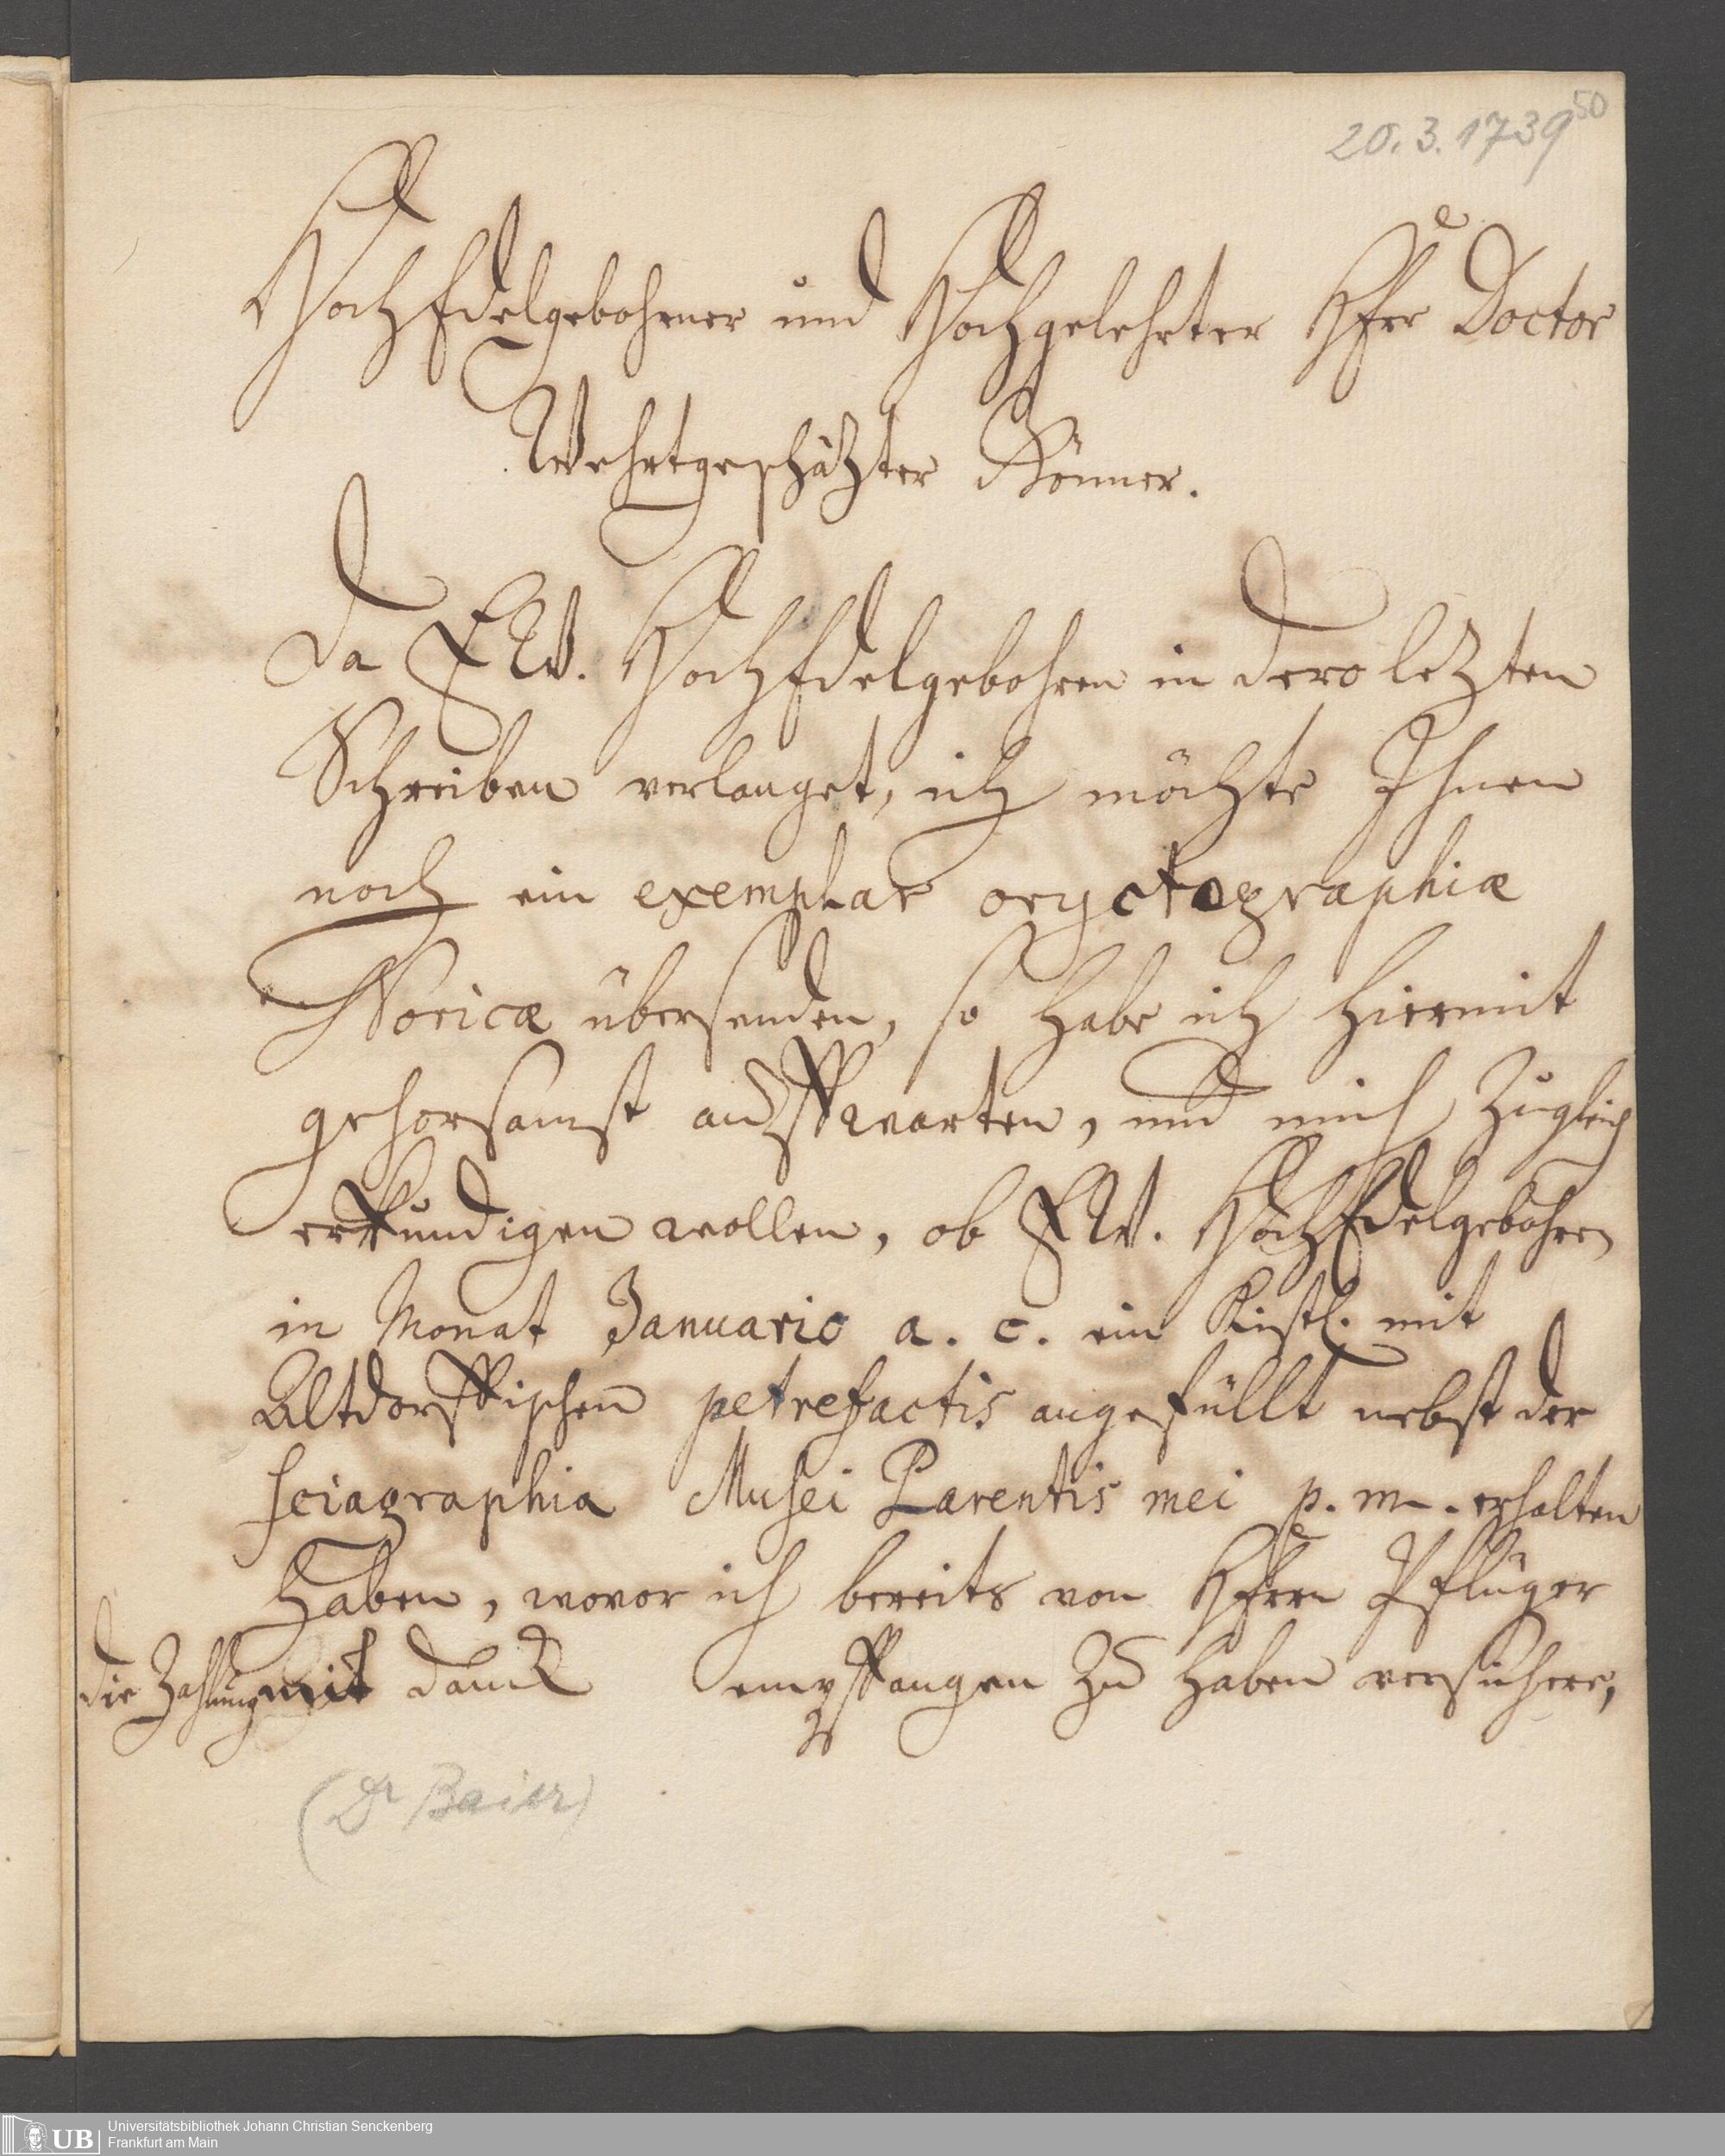 20.3.1739
50
HochEdelgebohrner und Hochgelehrter Herr Doctor
Wehrtgeschäzter Gönner.
Da EW. HochEdelgebohren in dero lezten
Schreiben verlanget, ich möchte Ihnen
noch ein exemplar oryctographiæ
Noricæ übersenden, so habe ich hiermit
gehorsamst auffwarten, und mich zugleich
erkundigen wollen, ob EW. HochEdelgebohren
in Monat Januario a. c. ein Kistl. mit
Altdorffischen petrefactis angefüllt nebst der
sciagraphia Musei Parentis mei p. m. erhalten
haben, wovor ich bereits von Herrn Pflüger
die Zahlung mit danck empffangen zu haben versichere,
(Dr Baier)
UB Universitätsbibliothek Johann Christian Senckenberg
Frankfurt am Main